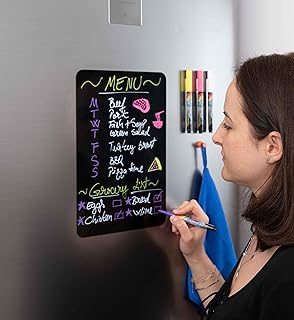 ~ MENU ~
M Beef
T Pork
W Fish + Beef
T Green Salad
F Turkey breast
S BBQ
S Pizza time
~ Grocery List ~
* Eggs * Bread
* Chicken * Wine